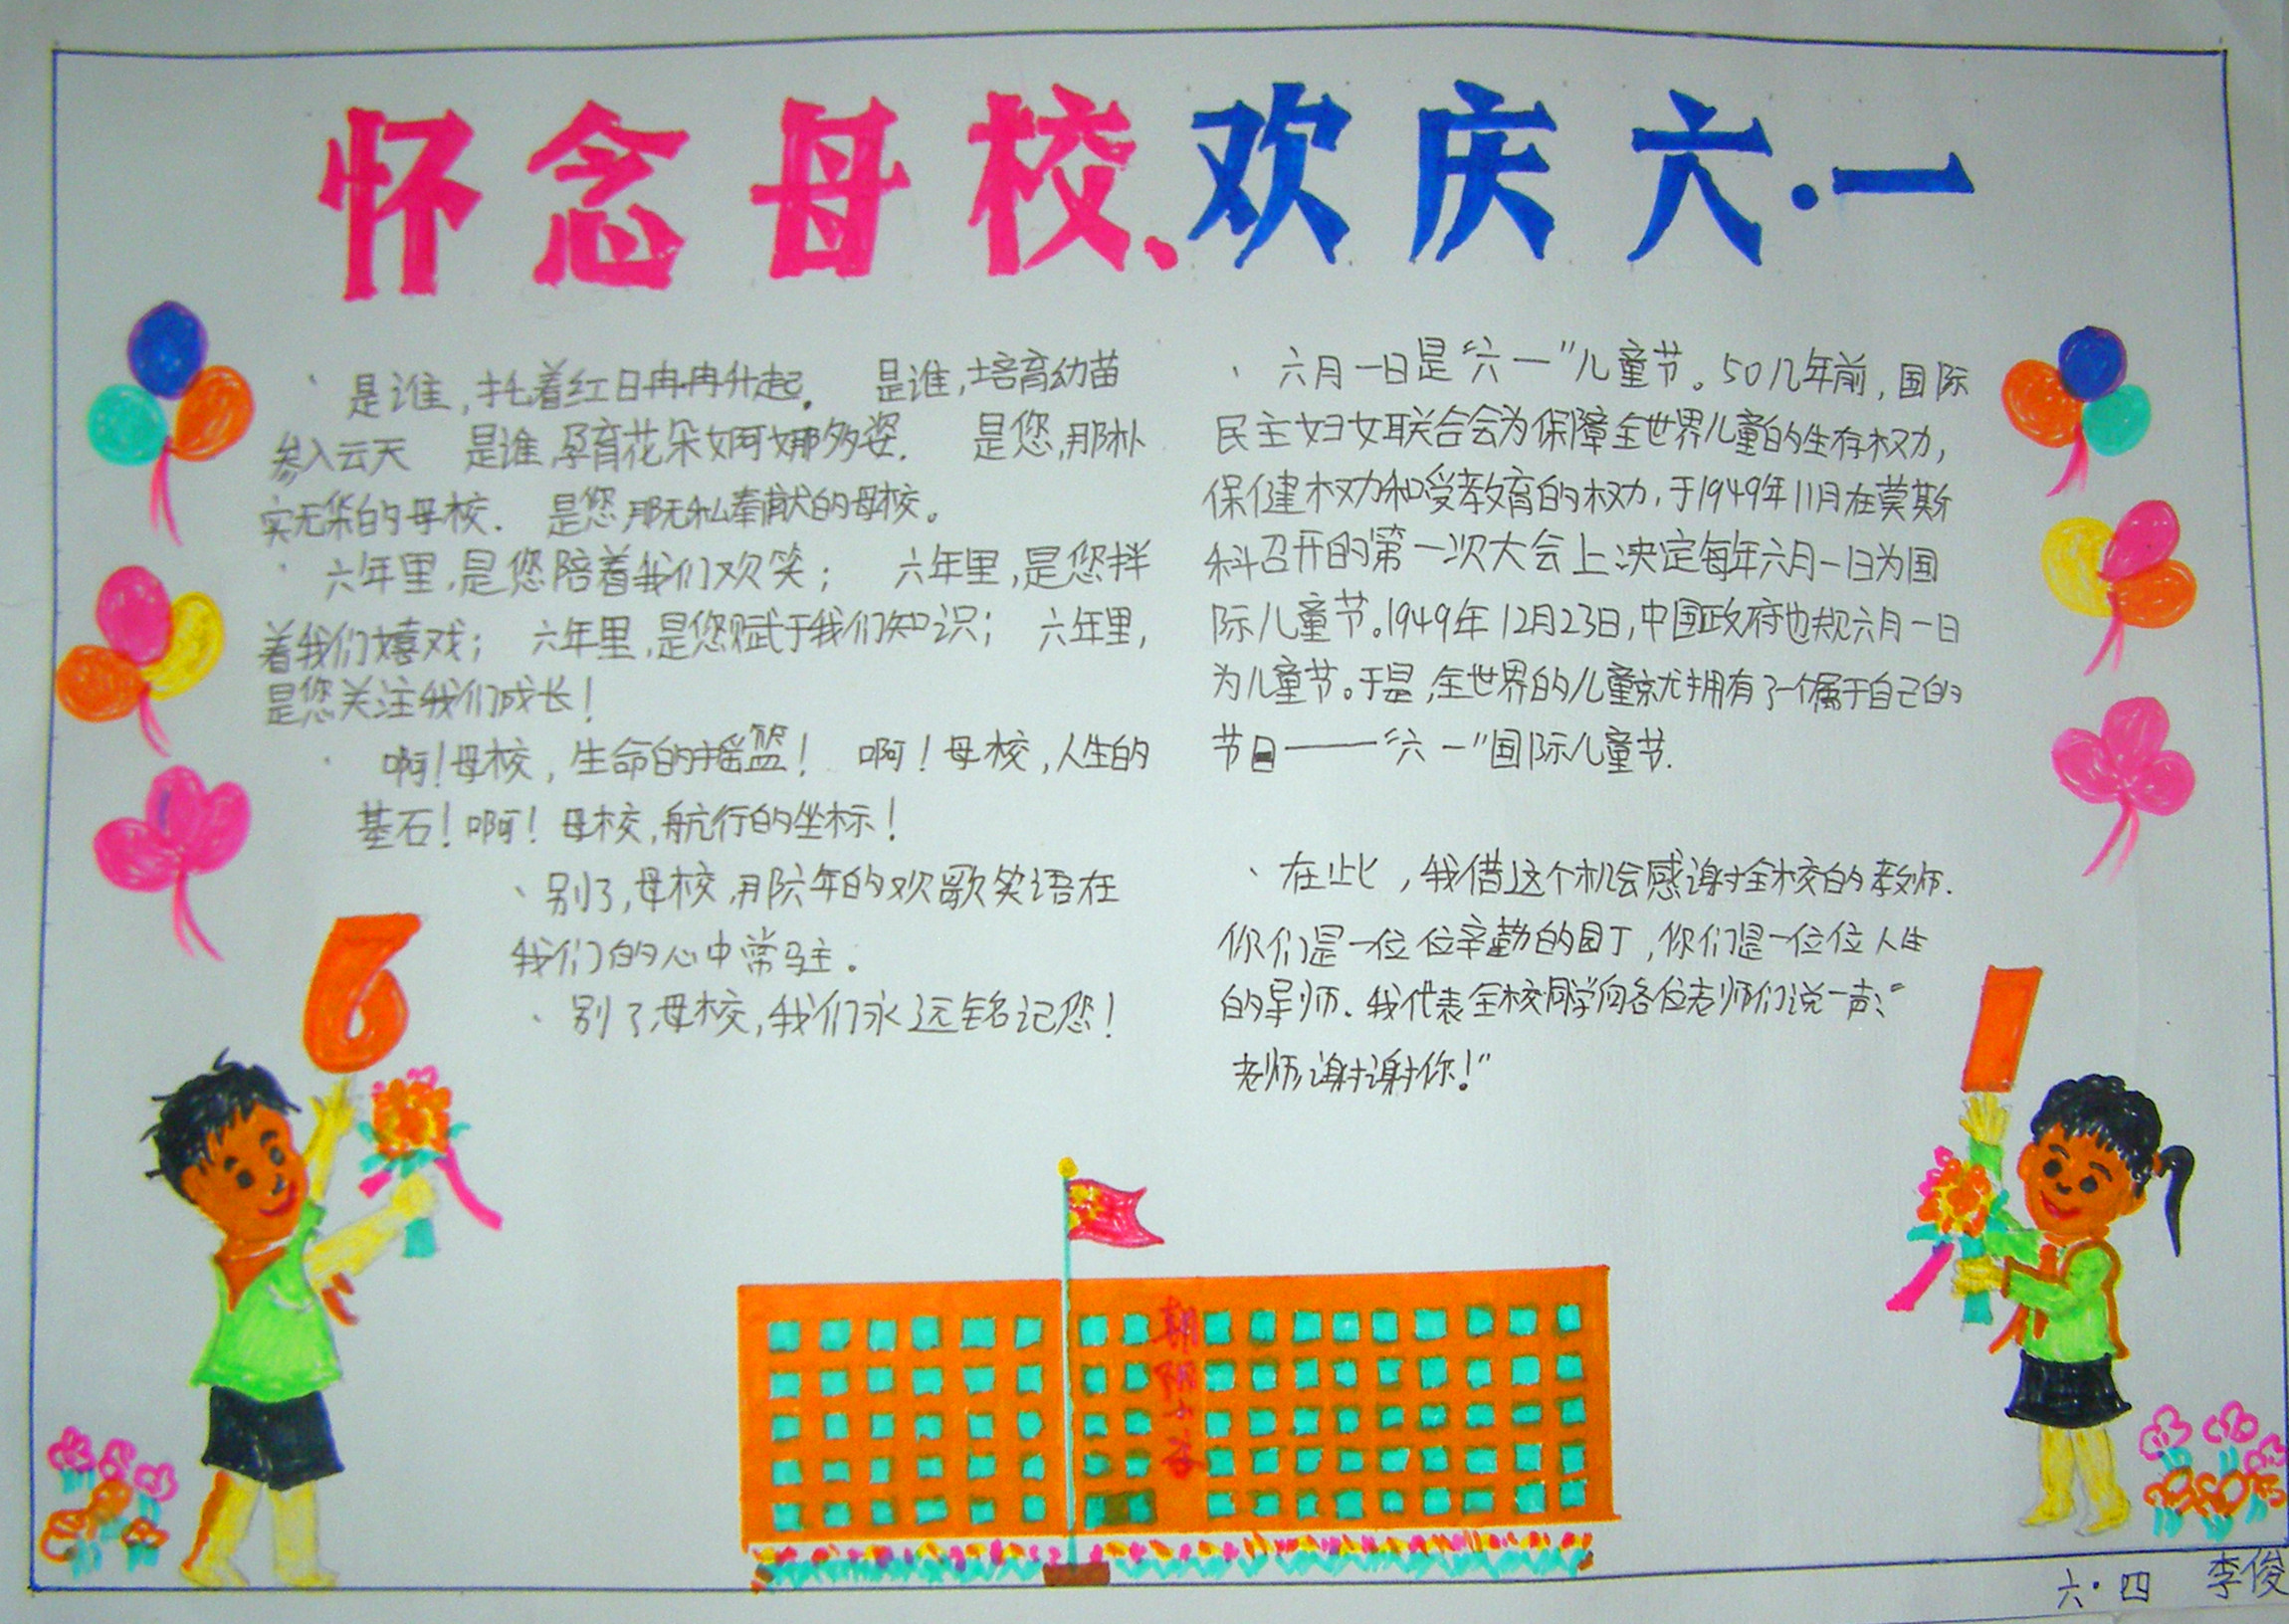 怀念母校、欢庆六·一
、是谁，托着红日冉冉升起. 是谁，培育幼苗
参入云天 是谁，孕育花朵婀娜多姿. 是您，那朴
实无华的母校. 是您那无私奉献的母校。
、六年里，是您陪着我们欢笑； 六年里，是您拌
着我们嬉戏； 六年里，是您赋于我们知识； 六年里，
是您关注我们成长！
、啊！母校，生命的摇篮！ 啊！母校，人生的
基石！啊！母校，航行的坐标！
、别了，母校，那六年的欢歌笑语在
我们的心中常驻.
、别了，母校，我们永远铭记您！
、六月一日是“六一”儿童节。50几年前，国际
民主妇女联合会为保障全世界儿童的生存权力，
保健权力和受教育的权力，于1949年11月在莫斯
科召开的第一次大会上决定每年六月一日为国
际儿童节。1949年12月23日，中国政府也规六月一日
为儿童节。于是，全世界的儿童就拥有了一个属于自己的
节日——“六一”国际儿童节.
、在此，我借这个机会感谢全校的教师.
你们是一位位辛勤的园丁，你们是一位位人生
的导师. 我代表全校同学向各位老师们说一声：“
老师，谢谢你！”
6
1
朝阳小学
六·四 李俊